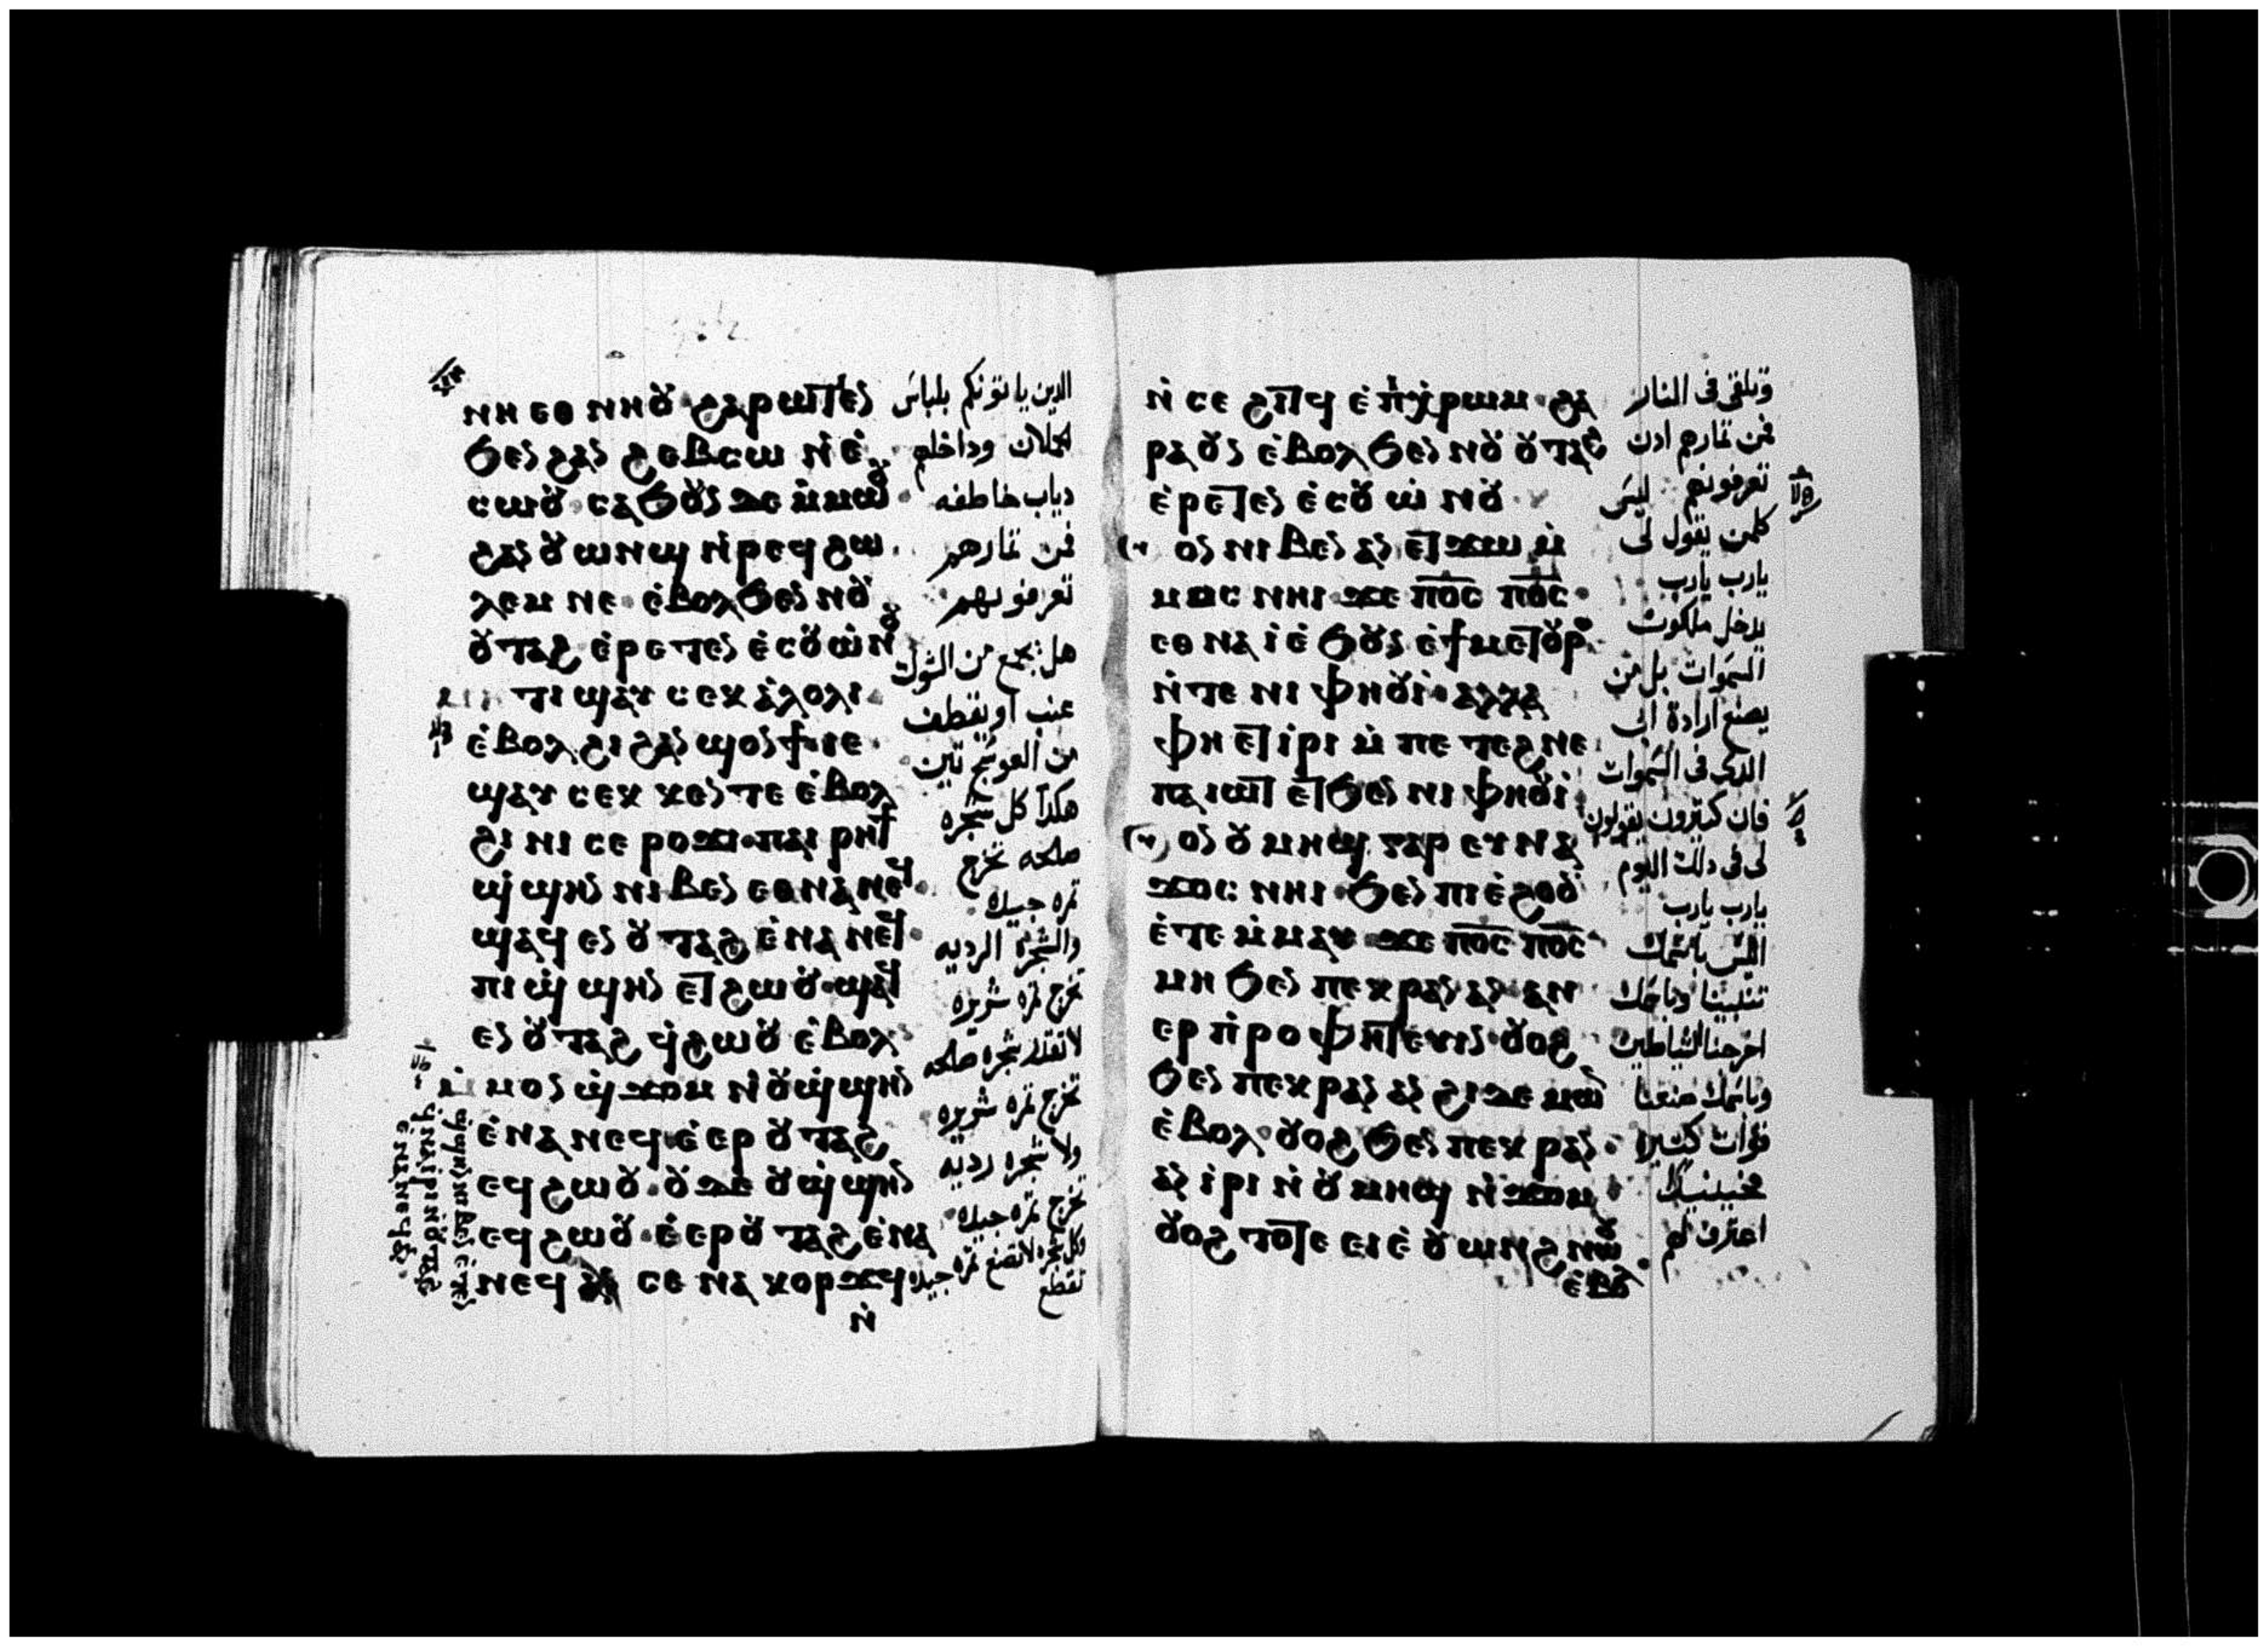 ⲛⲏ ⲉⲑ ⲛⲏⲟⲩ ϩⲁⲣⲱⲧⲉⲛ
ϧⲉⲛ ϩⲁⲛ ϩⲉⲃⲥⲱ ⲛ̀ⲉ̀
ⲥⲱⲟⲩ ⲥⲁϧⲟⲩⲛ ⲇⲉ ⲙ̀ⲙⲱⲟⲩ
ϩⲁⲛ ⲟⲩⲱⲛϣ ⲛ̀ⲣⲉϥ ϩⲱ
ⲗⲉⲙ ⲛⲉ ⲉ̀ⲃⲟⲗϧⲉⲛ ⲛⲟⲩ
ⲟⲩⲧⲁϩ ⲉ̀ⲣⲉⲧⲉⲛ ⲉ̀ⲥⲟⲩⲱ̀ⲛⲟⲩ
ⲙⲏⲧⲓ ϣⲁⲩ ⲥⲉⲕ ⲁ̀ⲗⲟⲗⲓ
ⲉ̀ⲃⲟⲗ ϩⲓ ϩⲁⲛ ϣⲟⲛϯ ⲓⲉ
ϣⲁⲩ ⲥⲉⲕ ⲕⲉⲛⲧⲉ ⲉ̀ⲃⲟⲗ
ϩⲓ ⲛⲓ ⲥⲉ ⲣⲟϫⲓ ⲡⲁⲓ ⲣⲏϯ
ϣ̀ϣⲏⲛ ⲛⲓⲃⲉⲛ ⲉⲑⲛⲁⲛⲉϥ
ϣⲁϥ ⲉⲛ ⲟⲩⲧⲁϩ ⲉ̀ⲛⲁⲛⲉϥ
ⲡⲓ ϣ̀ϣⲏⲛ ⲉⲧϩⲱⲟⲩ ϣⲁϥ
ⲉⲛ ⲟⲩⲧⲁϩ ϥ̀ϩⲱⲟⲩ ⲉ̀ⲃⲟⲗ
ⲙ̀ⲙⲟⲛ ϣ̀ϫⲟⲙ ⲛ̀ⲟⲩϣ̀ϣⲏⲛ
ⲉ̀ⲛⲁⲛⲉϥ ⲉ̀ⲉⲣ ⲟⲩⲧⲁϩ
ⲉϥϩⲱⲟⲩ ⲟⲩⲇⲉ ⲟⲩϣ̀ϣⲏⲛ
ⲉϥϩⲱⲟⲩ ⲉ̀ⲉⲣ ⲟⲩⲧⲁϩ ⲉ̀ⲛⲁ
ⲛⲉϥ ⲁⲛ ⲥⲉ ⲛⲁ ⲕⲟⲣϫϥ
ⲛ̀
ϣ̀ϣⲏⲛ ⲛⲓⲃⲉⲛ ⲉ̀ⲧⲉⲛ
ϥ̀ⲛⲁⲓ̀ⲣⲓ ⲛ̀ⲟⲩⲧⲁϩ
ⲉⲛⲁⲛⲉϥ
الدين ياتونكم بلباس
الحملان وداخلهم
دياب خاطفه
فمن ثمارهم
تعرفونهم
هل يجمع من الشوك
عنب او يقطف
من العوسج تين
هكذا كل شجره
صالحه تخرج
ثمره جيده
والشجره الرديه
تخرج ثمره شريره
لا تقدر شجره صالحه
تخرج ثمره شريره
ولا شجره رديه
تخرج ثمره جيده
وكل شجره لا تصنع ثمره جيده
تقطع
ⲛ̀ ⲥⲉ ϩⲓⲧϥ ⲉ̀ⲡⲓⲭ̀ⲣⲱⲙ ϩⲁ
ⲣⲁ ⲟⲩⲛ ⲉ̀ⲃⲟⲗϧⲉⲛ ⲛⲟⲩ ⲟⲩⲧⲁϩ
ⲉ̀ⲣⲉⲧⲉⲛ ⲉ̀ⲥⲟⲩⲱ̀ⲛⲟⲩ
ⲟⲛ ⲛⲓⲃⲉⲛ ⲁⲛ ⲉⲧϫⲱ ⲙ̀
ⲙⲟⲥ ⲛⲏⲓ ϫⲉ ⲡⲟ̅ⲥ̅ ⲡⲟ̅ⲥ̅
ⲉⲑⲛⲁ ⲓ̀ ⲉ̀ϧⲟⲩⲛ ⲉ̀ϯⲙⲉⲧⲟⲩⲣⲟ
ⲛ̀ⲧⲉ ⲛⲓ ⲫⲏⲟⲩⲓ̀ ⲁⲗⲗⲁ
ⲫⲏ ⲉⲧⲓ̀ⲣⲓ ⲙ̀ⲡⲉⲧⲉϩⲛⲉ
ⲡⲁⲓⲱⲧ ⲉⲧϧⲉⲛ ⲛⲓ ⲫⲏⲟⲩⲓ̀
ⲟⲛ ⲟⲩⲙⲏϣ ⲅⲁⲣ ⲉⲩⲛⲁ
ϫⲟⲥ ⲛⲏⲓ ϧⲉⲛ ⲡⲓⲉ̀ϩⲟⲟⲩ
ⲉ̀ⲧⲉ ⲙ̀ⲙⲁⲩ ϫⲉ ⲡⲟ̅ⲥ̅ ⲡⲟ̅ⲥ̅
ⲙⲏ ϧⲉⲛ ⲡⲉⲕⲣⲁⲛ ⲁⲛ ⲁⲛ
ⲉⲣ ⲡ̀ⲣⲟⲫⲏⲧⲉⲩⲓⲛ ⲟⲩⲟϩ
ϧⲉⲛ ⲡⲉⲕⲣⲁⲛ ⲁⲛ ϩⲓ ⲇⲉⲙⲱⲛ
ⲉ̀ⲃⲟⲗ ⲟⲩⲟϩ ϧⲉⲛ ⲡⲉⲕⲣⲁⲛ
ⲁⲛ ⲓ̀ⲣⲓ ⲛ̀ⲟⲩⲙⲏϣ ⲛ̀ϫⲟⲙ
ⲟⲩⲟϩ ⲧⲟⲧⲉ ⲉⲓⲉ̀ⲟⲩⲱⲛϩ ⲛⲱⲟⲩ
ⲉ̀ⲃⲟⲗ
وتلقى فى النار
فمن ثمارهم ادن
تعرفونهم ليس
كلمن يقول لى
يارب يارب
يدخل ملكوت
السموات بل من
يصنع ارادة ابى
الدى فى السموات
فان كثيرون يقولون
لى فى دلك اليوم
يارب يارب
اليس باسمك
تنبينا وباسمك
اخرجنا الشياطين
وباسمك صنعنا
قوات كثيرا
فحينيذ
اعترف لهم